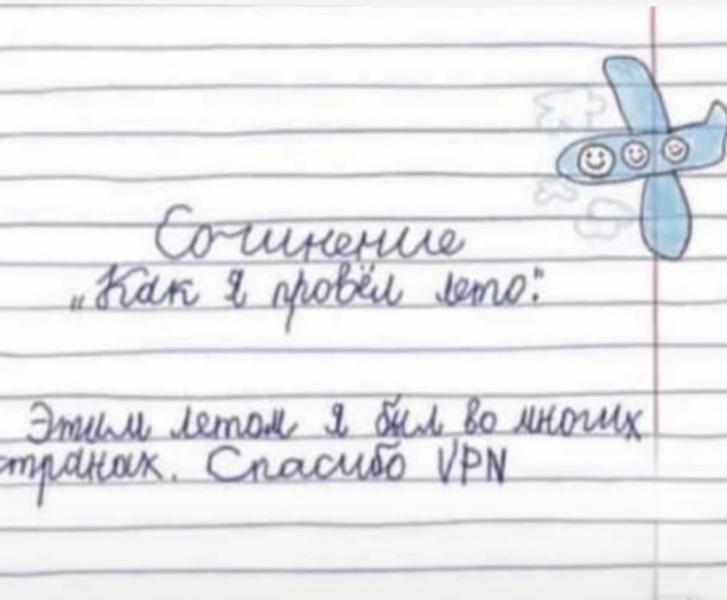 Сочинение
„Как я провёл лето."
Этим летом я был во многих
странах. Спасибо VPN